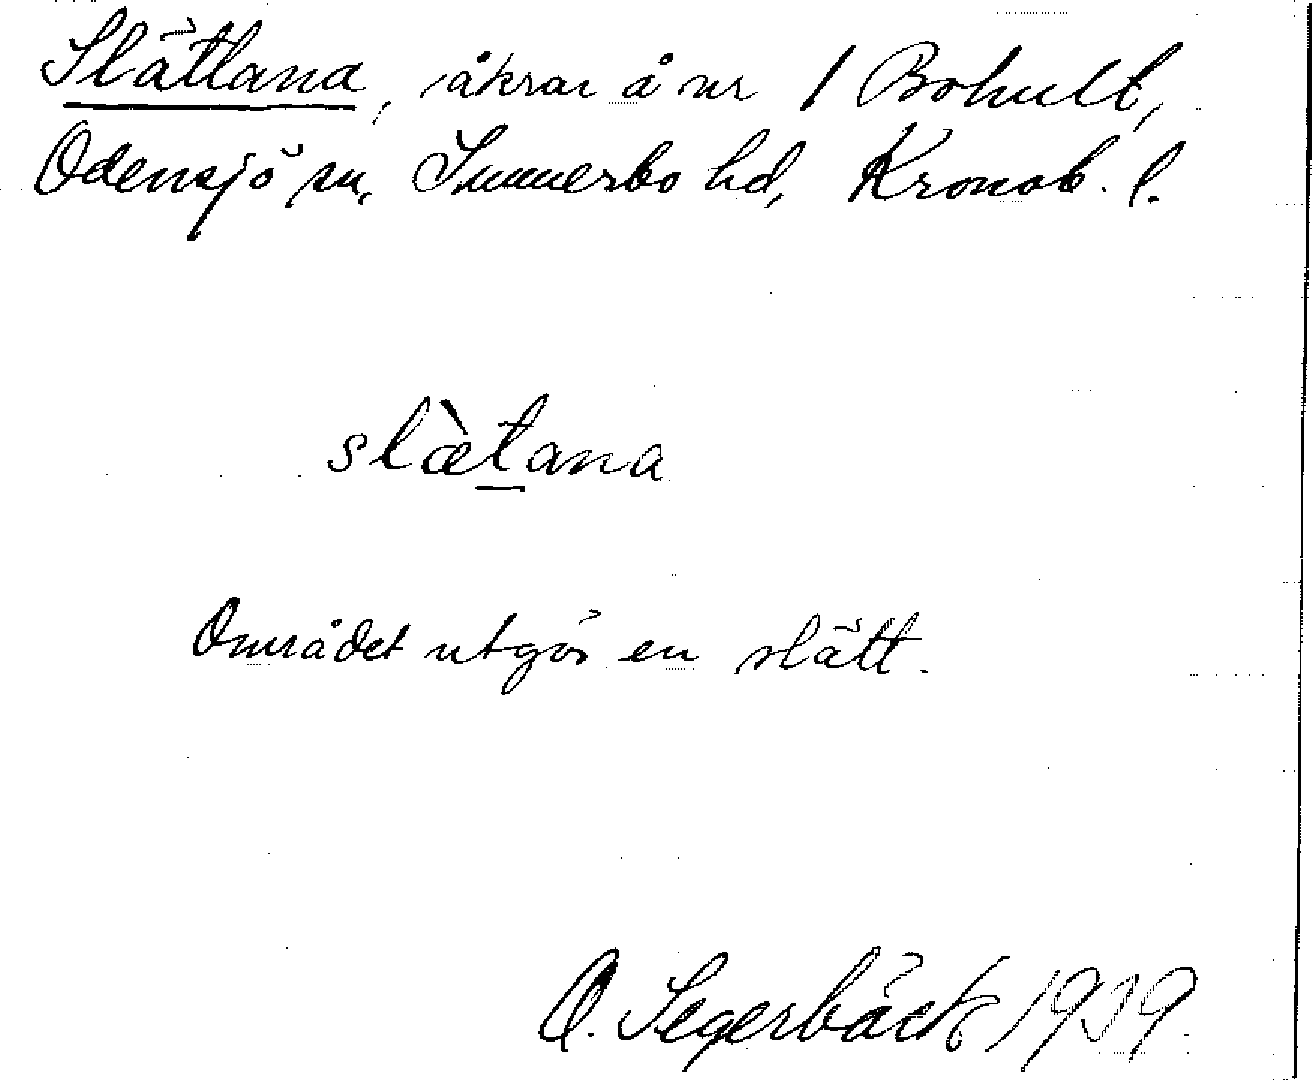 Slätlana, åkrar å nr 1 Bohult,
Odensjö sn, Sunnerbo hd, Kronob. l.
slæ̀tana
Området utgör en slätt.
O. Segerbäck 1939.